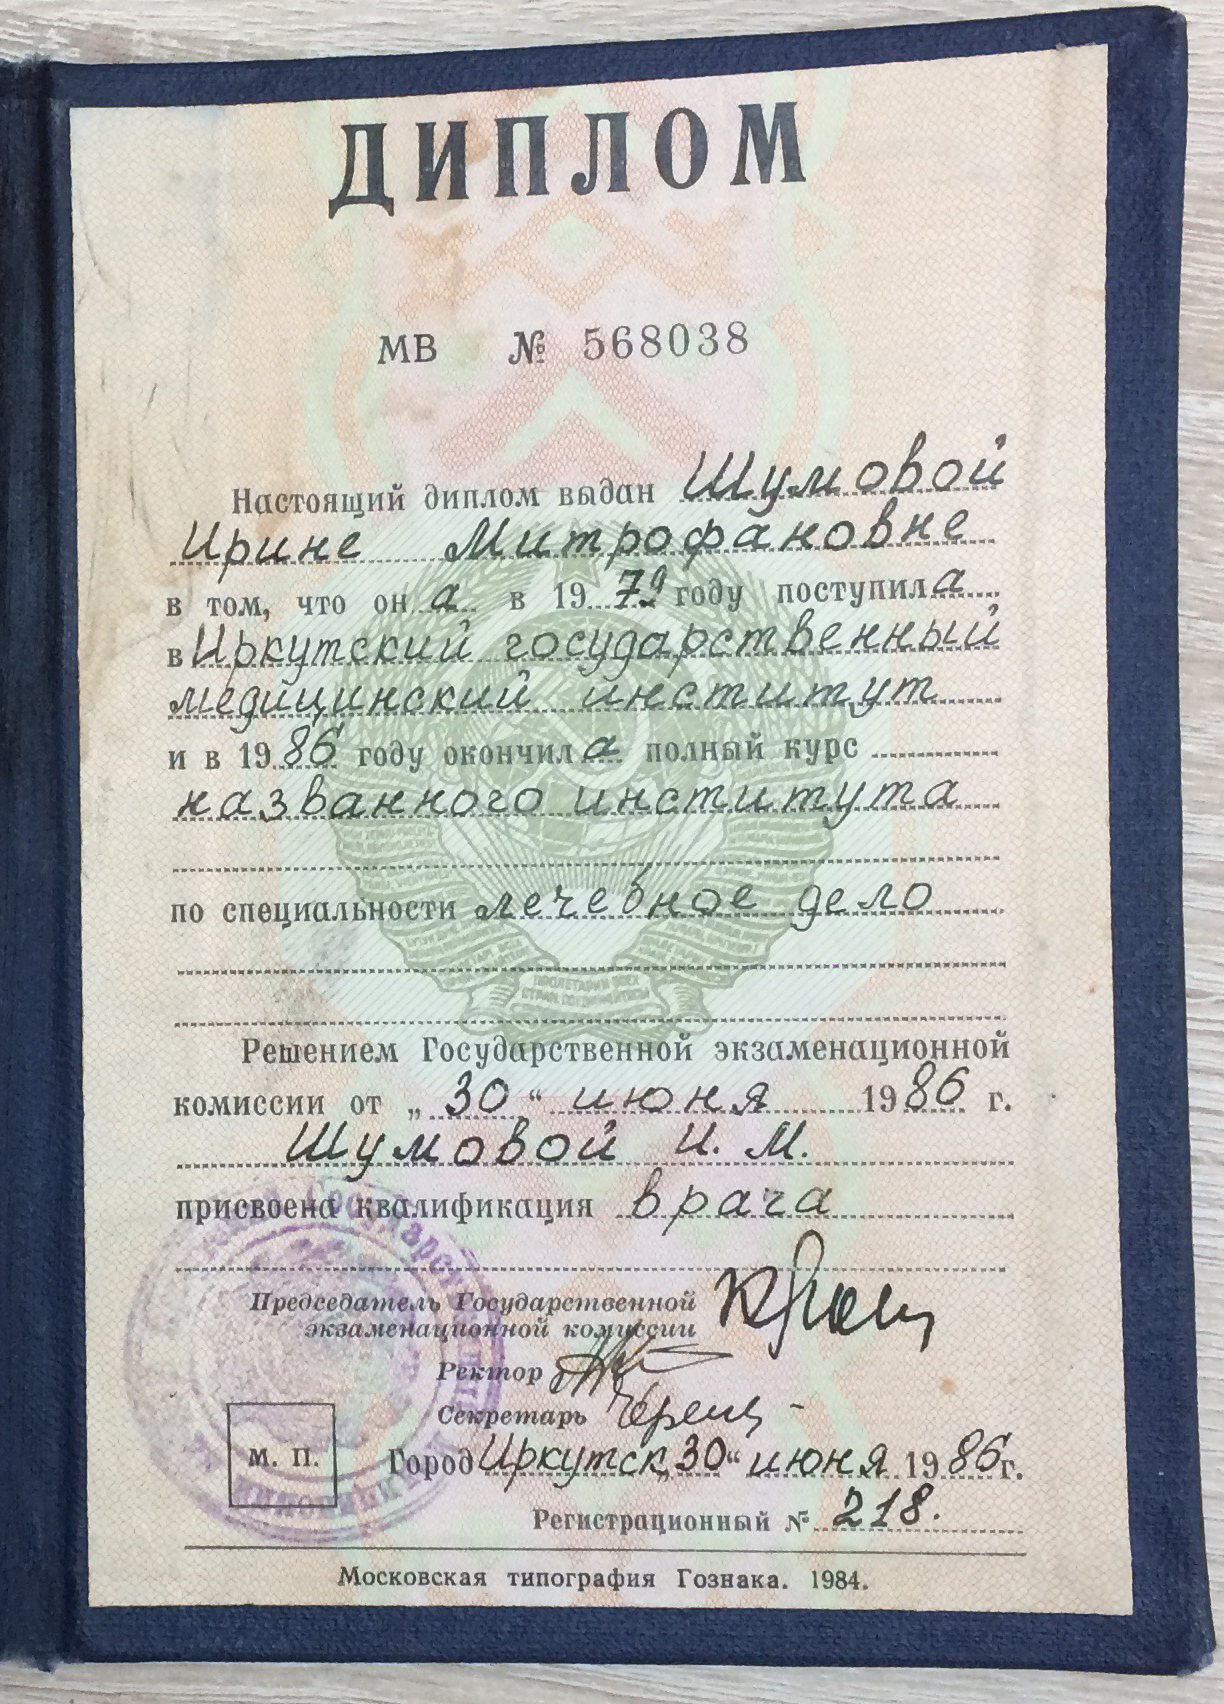 ДИПЛОМ
МВ № 568038
Настоящий диплом выдан Шумовой
Ирине Митрофановне
в том, что он а в 1979 году поступила
в Иркутский государственный
медицинский институт
и в 1986 году окончила полный курс
названного института
по специальности лечебное дело
Решением Государственной экзаменационной
комиссии от „30“ июня 1986 г.
Шумовой И. М.
присвоена квалификация врача
Председатель Государственной
экзаменационной комиссии
Ректор
Секретарь
М. П.
Город Иркутск „30“ июня 1986 г.
Регистрационный № 218.
Московская типография Гознака. 1984.